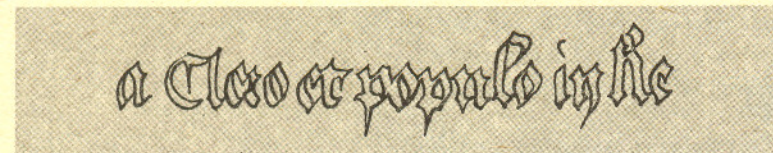 a Clero et populo in hc